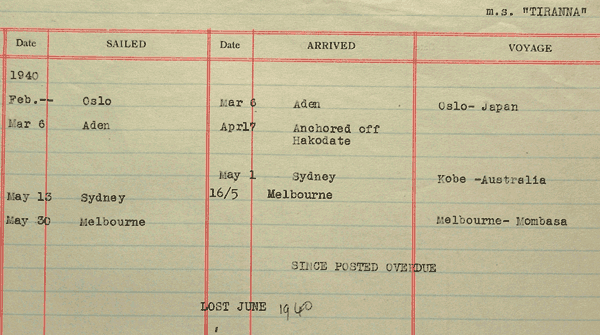 m.s. "TIRANNA"
Date SAILED Date ARRIVED VOYAGE
1940
Feb.-- Oslo Mar 6 Aden Oslo- Japan
Mar 6 Aden Apr17 Anchored off
Hakodate
May 1 Sydney Kobe -Australia
May 13 Sydney 16/5 Melbourne
May 30 Melbourne Melbourne- Mombasa
SINCE POSTED OVERDUE
LOST JUNE 1940